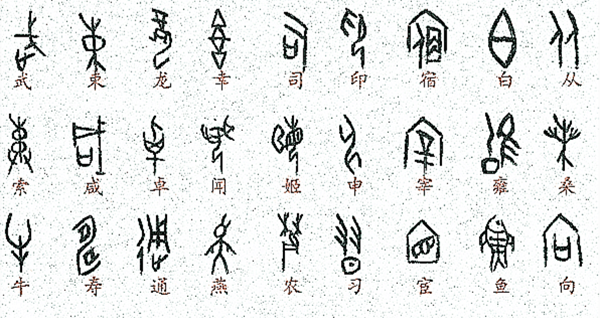 武 束 龙 幸 司 印 宿 白 从
索 咸 卓 闻 姬 申 宰 雍 桑
牛 寿 通 燕 农 习 宦 鱼 向